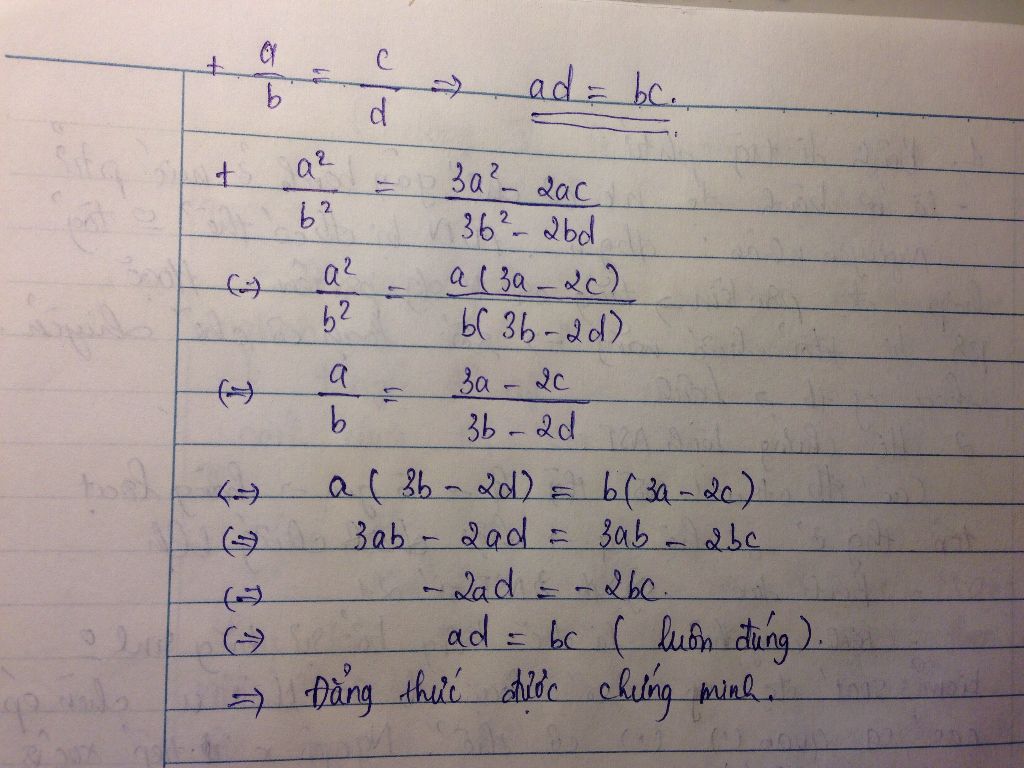 + a/b = c/d => ad = bc.
+ a²/b² = 3a² - 2ac / 3b² - 2bd
(=) a²/b² = a(3a - 2c) / b(3b - 2d)
(=) a/b = 3a - 2c / 3b - 2d
<=> a(3b - 2d) = b(3a - 2c)
(=) 3ab - 2ad = 3ab - 2bc
(=) - 2ad = - 2bc.
(=) ad = bc (luôn đúng).
=> Đẳng thức được chứng minh.